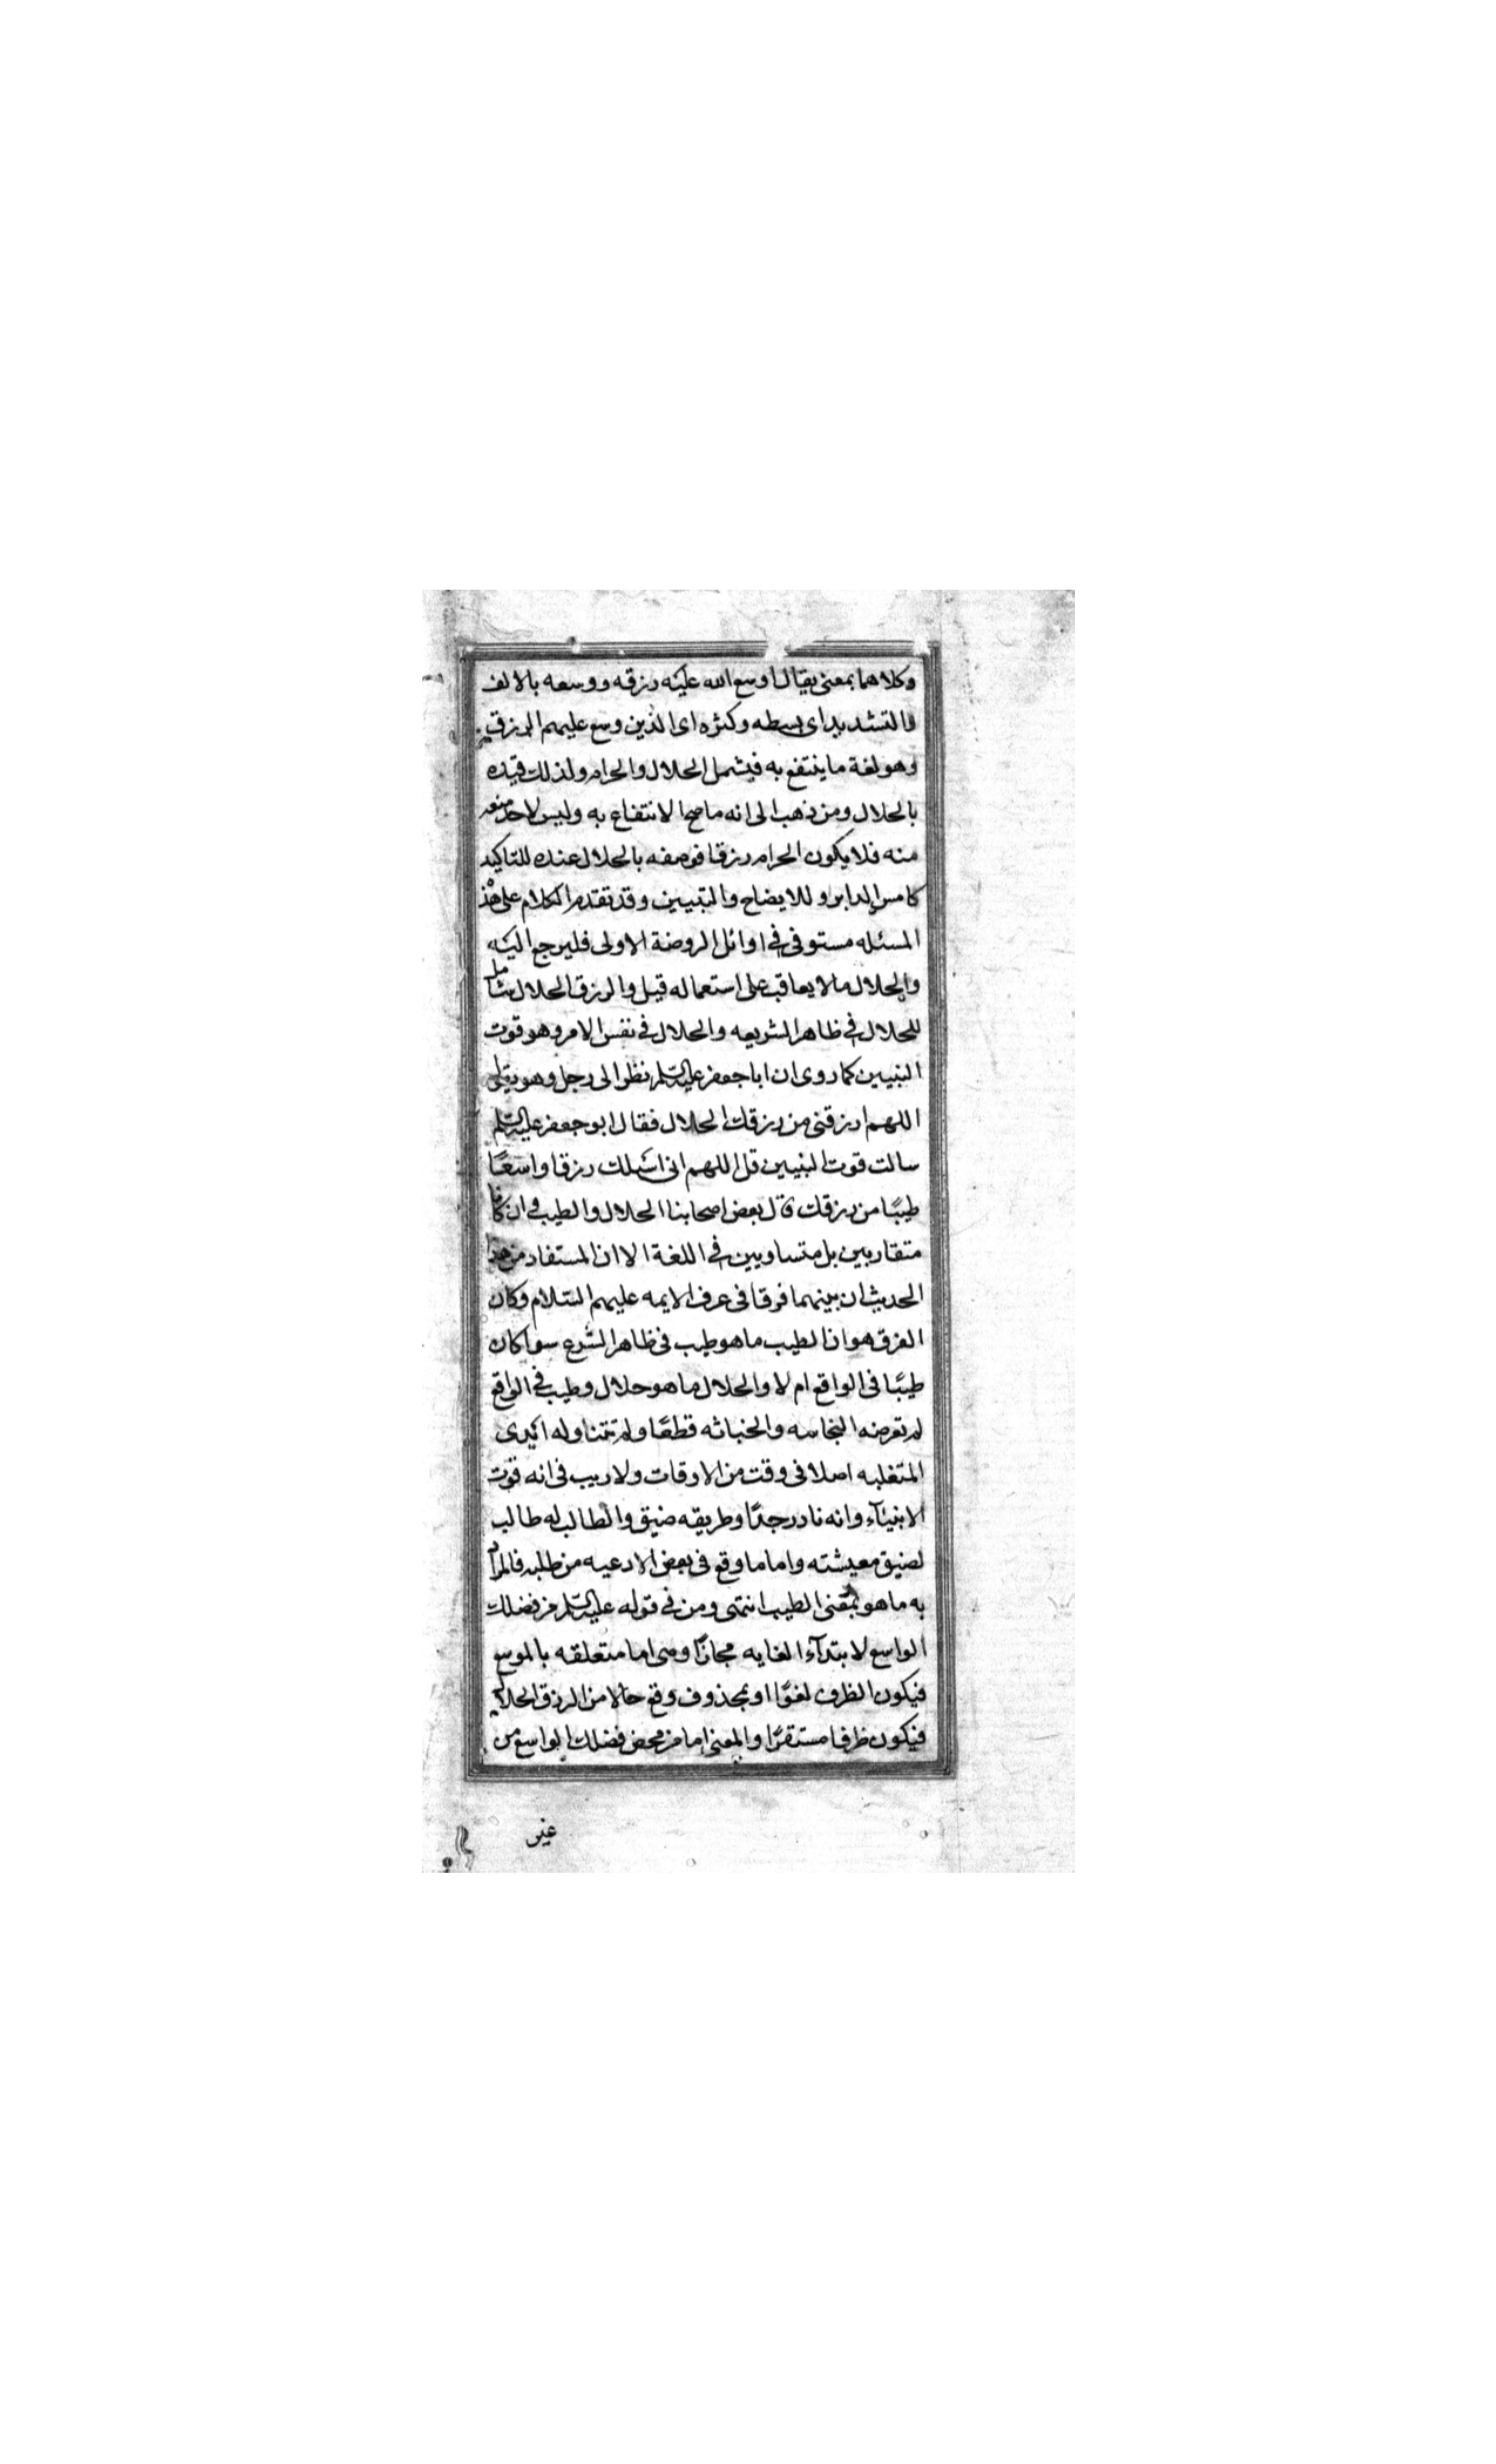 وكلاهما بمعنى يقال اوسع الله عليه رزقه ووسعه بالالف
والتشديد اى بسطه وكثره اى الذين وسع عليهم الرزق
وهو لغة ما ينتفع به فيشمل الحلال والحرام ولذلك قيده
بالحلال ومن ذهب الى انه ما صح الانتفاع به وليس لاحد منعه
منه فلا يكون الحرام رزقا فوصفه بالحلال عنده للتاكيد
كامس الدابر وللايضاح والتبيين وقد تقدم الكلام على هذه
المسئله مستوفى فى اوائل الروضة الاولى فليرجع اليه
والحلال ما لا يعاقب على استعماله قيل والرزق الحلال شامل
للحلال فى ظاهر الشريعه والحلال فى نفس الامر وهو قوت
النبيين كما روى ان ابا جعفر عليه السلم نظر الى رجل وهو يقول
اللهم ارزقنى من رزقك الحلال فقال ابو جعفر عليه السلم
سالت قوت النبيين قل اللهم انى اسئلك رزقا واسعًا
طيبًا من رزقك قال بعض اصحابنا الحلال والطيب وان كانا
متقاربين بل متساويين فى اللغة الا ان المستفاد من هذا
الحديث ان بينهما فرقا فى عرف الايمه عليهم السّلام وكان
الفرق هو ان الطيب ما هو طيب فى ظاهر الشرع سوا كان
طيبًا فى الواقع ام لا والحلال ما هو حلال وطيب فى الواقع
لم تعرضه النجاسه والخباثه قطعًا ولم تتناوله ايدى
المتغلبه اصلا فى وقت من الاوقات ولا ريب فى انه قوت
الانبيآء وانه نادر جدًا وطريقه ضيق والطالب له طالب
لضيق معيشته واما ما وقع فى بعض الادعيه من طلبه فالمراد
به ما هو بمعنى الطيب انتهى ومن فى قوله عليه السلم من فضلك
الواسع لابتدآء الغايه مجازًا وهى اما متعلقه بالموسع
فيكون الظرف لغوًا او بمحذوف وقع حالا من الرزق الحلال
فيكون ظرفا مستقرًا والمعنى اما من محض فضلك الواسع من
غير